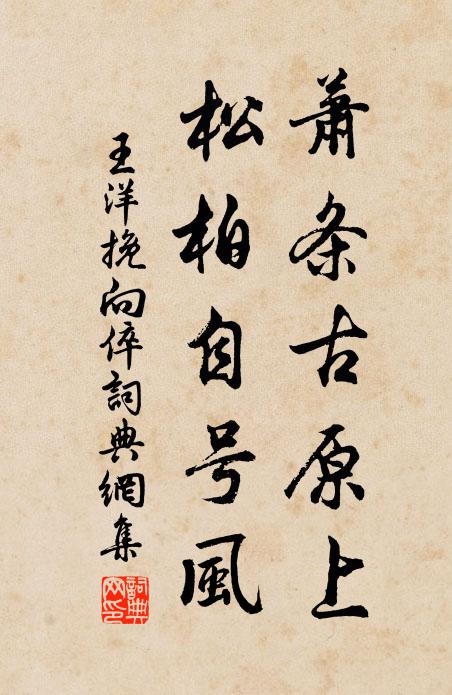 萧条古原上
松柏自号風
王洋挽向倅詞典網集
詞典网印